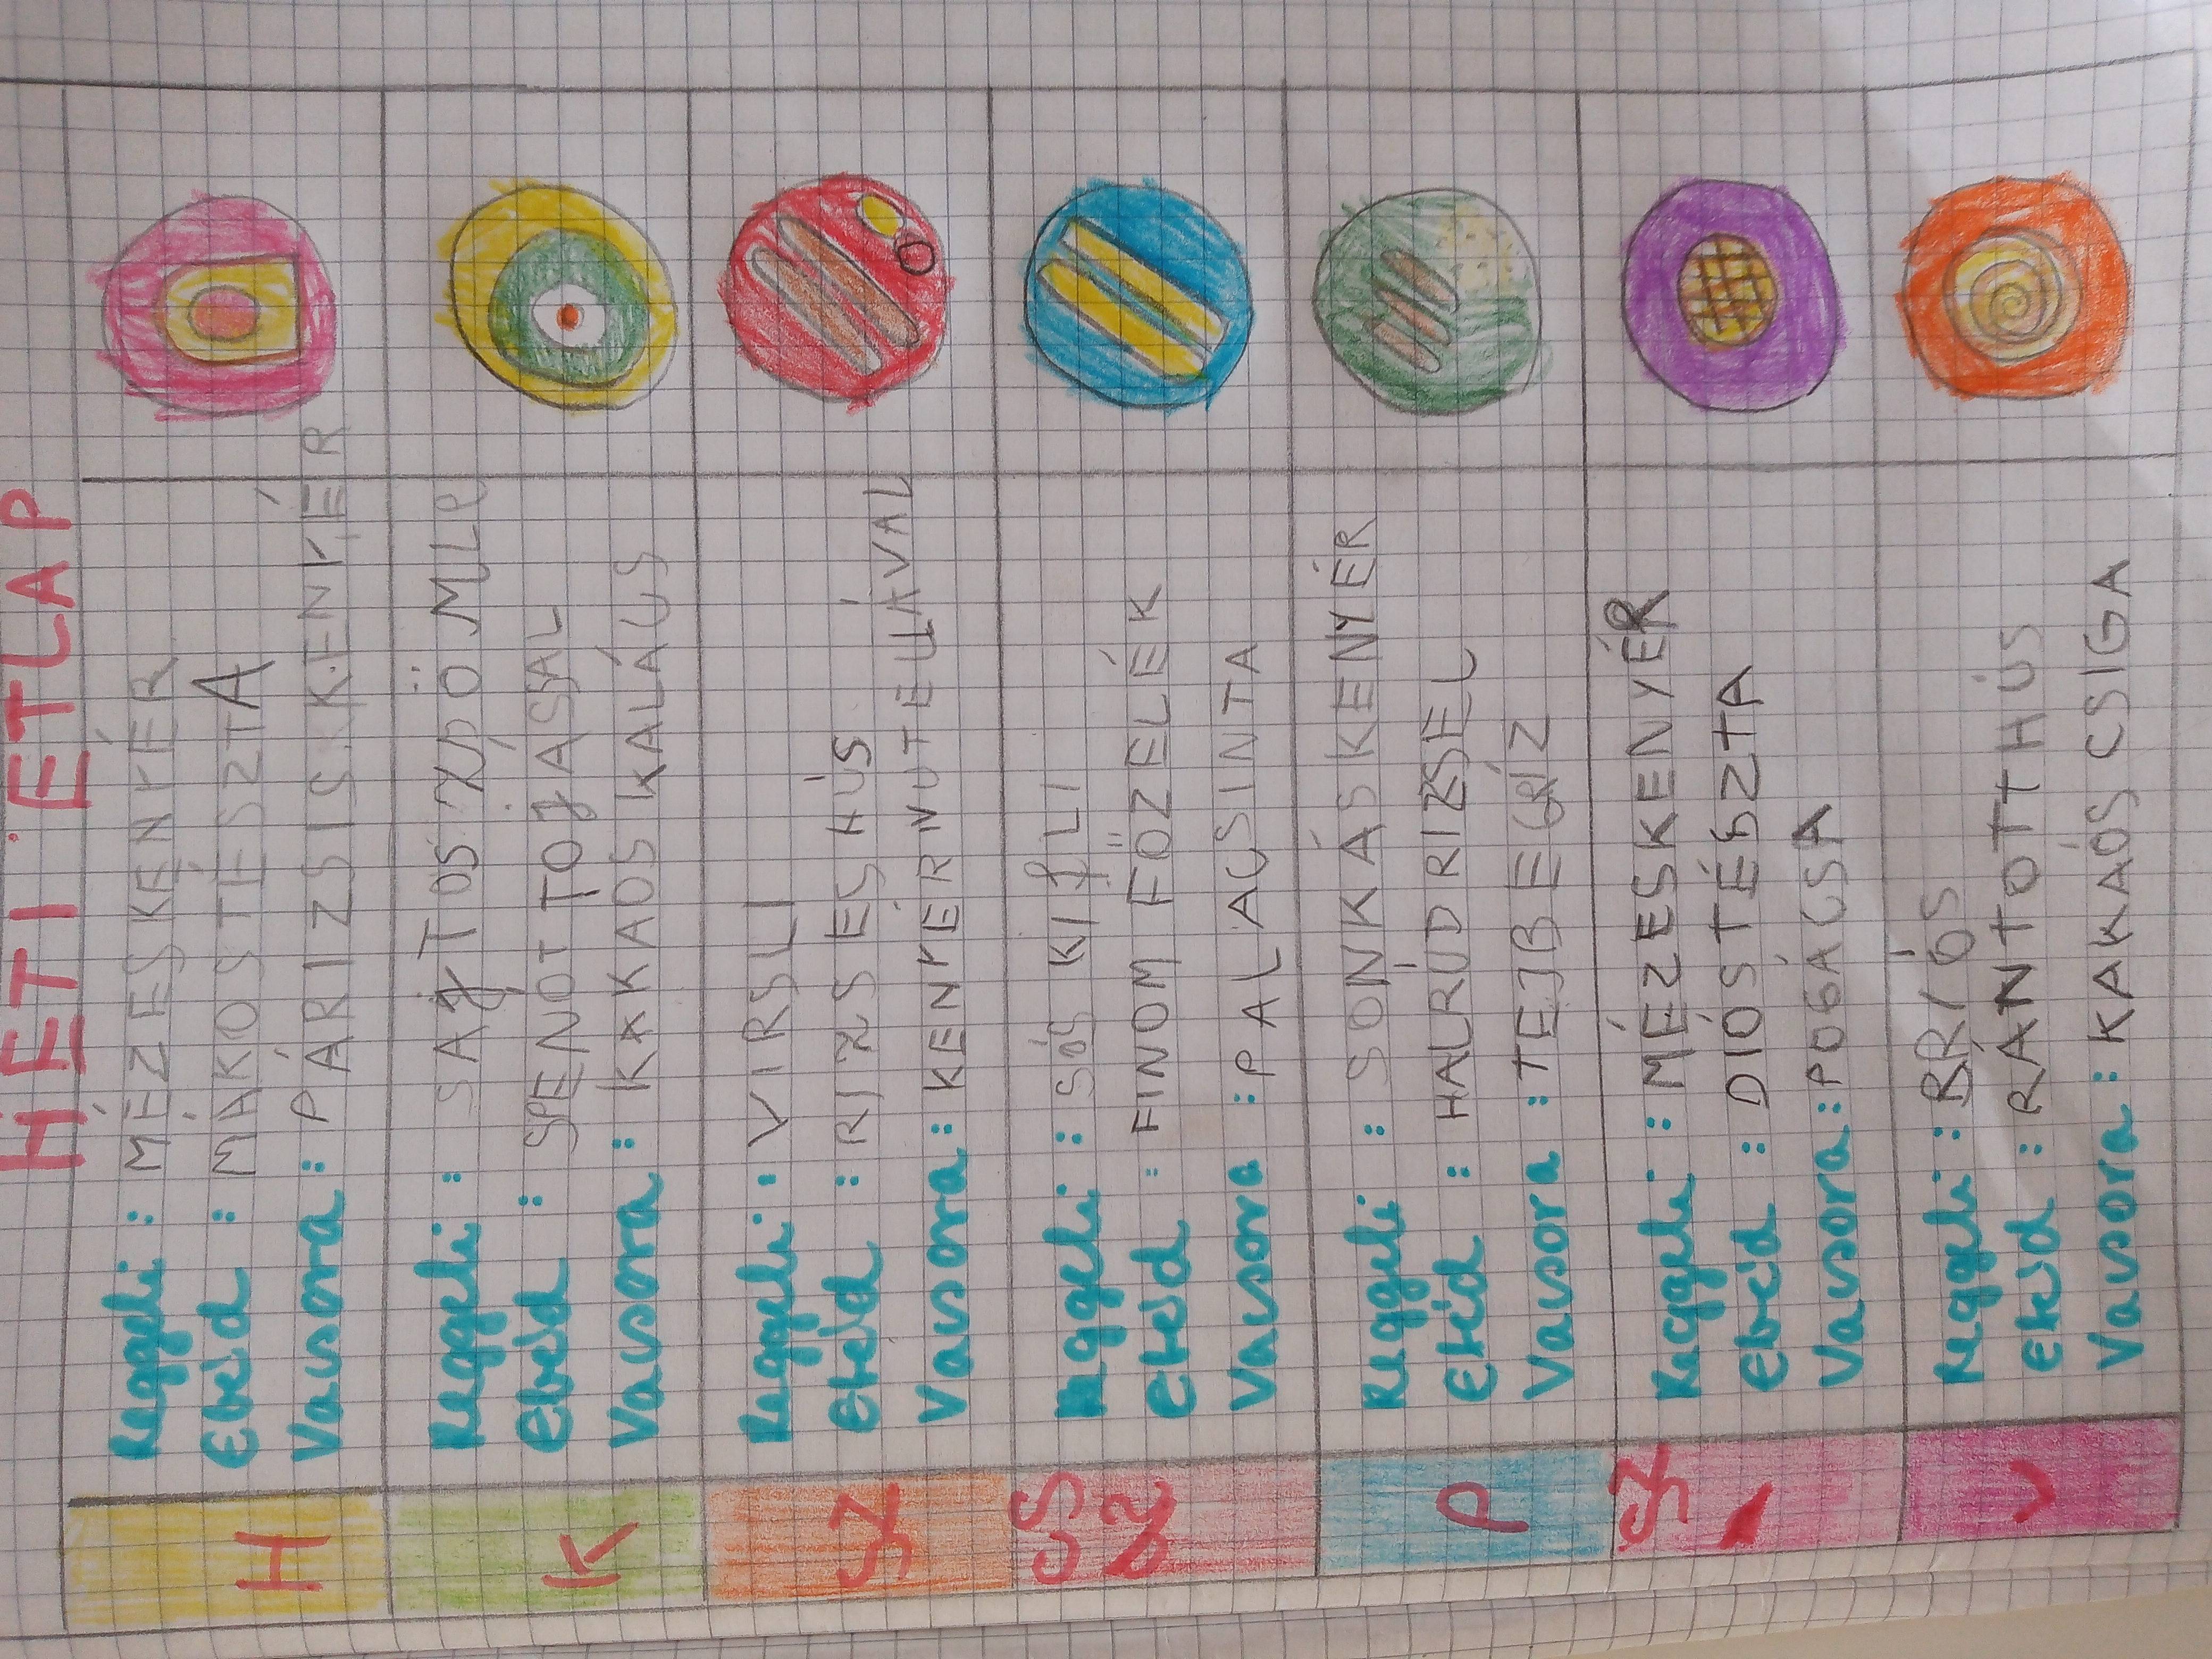 HETI ÉTLAP
H
Reggeli: MÉZESKENYÉR
Ebéd: MÁKOSTÉSZTA
Vacsora: PÁRIZSISKENYÉR
K
Reggeli: SAJTOS ZSÖMLE
Ebéd: SPENÓT TOJÁSSAL
Vacsora: KAKAOS KALÁCS
SZ
Reggeli: VIRSLI
Ebéd: RIZS ÉS HÚS
Vacsora: KENYÉR NUTELLÁVAL
CS
Reggeli: SÓS KIFLI
Ebéd: FINOM FŐZELÉK
Vacsora: PALACSINTA
P
Reggeli: SONKÁSKENYÉR
Ebéd: HALRÚD RIZSEL
Vacsora: TEJBEGRÍZ
Reggeli: MÉZESKENYÉR
Ebéd: DIÓSTÉSZTA
Vacsora: POGÁCSA
V
Reggeli: BRIÓS
Ebéd: RÁNTOTTHÚS
Vacsora: KAKAÓS CSIGA